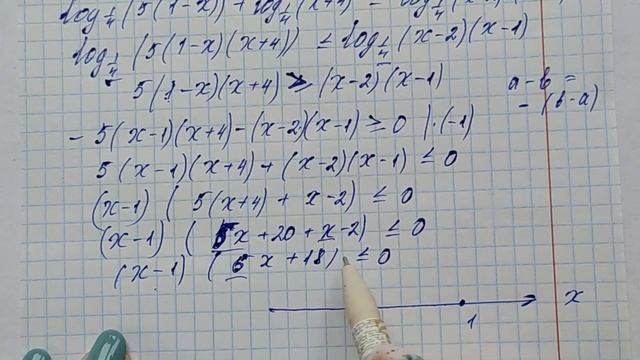 log_{1/4} (5(1-x)) + log_{1/4} (x+4)
log_{1/4} (5(1-x)(x+4)) ≤ log_{1/4} (x-2)(x-1)
5(1-x)(x+4) ≥ (x-2)(x-1)
a-b =
- (b-a)
- 5(x-1)(x+4) - (x-2)(x-1) ≥ 0 | ·(-1)
5(x-1)(x+4) + (x-2)(x-1) ≤ 0
(x-1) ( 5(x+4) + x-2) ≤ 0
(x-1) ( 5x +20 +x-2) ≤ 0
(x-1) ( 6x +18) ≤ 0
1 x